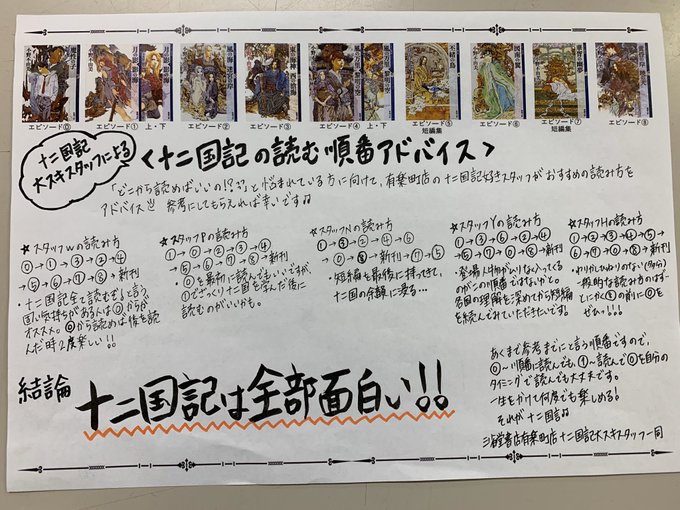 エピソード⓪
エピソード① 上・下
エピソード②
エピソード③
エピソード④ 上・下
エピソード⑤
短編集
エピソード⑥
エピソード⑦
短編集
エピソード⑧
十二国記
大スキスタッフによる
<十二国記の読む順番アドバイス>
「どこから読めばいいの!??」と悩まれている方に向けて、有楽町店の十二国記好きスタッフがおすすめの読み方を
アドバイス!!! 参考にしてもらえれば幸いです
☆スタッフWの読み方
⓪→①→③→②→④
→⑤→⑥→⑦→⑧→新刊
・十二国記全て読むぞ!と言う
固い気持ちがある人は⓪からが
オススメ。⓪から読めば後を読
んだ時2度楽しい!!
☆スタッフPの読み方
①→②→③→④
→⑤→⑥→⑦→⑧→新刊
・⓪を最初に読んでもいいですが、
①でざっくり十二国を学んだ後に
読むのがいいかも。
☆スタッフNの読み方
・短編を最後に持ってきて、
十二国の余韻に浸る…
☆スタッフYの読み方
①→③→⑥→②→④
→⑤→⑦→⓪→⑧→新刊
・登場人物がムリなく入ってくる
のがこの順番ではないかと。
各国の理解を深めてから短編
を読んでみていただきたいです。
☆スタッフHの読み方
①→②→③→④→⑤
一般的な読み方のはず
でにかく⑧の前に⓪を
ぜひ!!!
結論
十二国記は全部面白い!!
あくまで参考までにと言う順番ですので、
⓪〜順番に読んでも、①〜読んで⓪を自分の
タイミングで読んでも大丈夫です。
一生をかけて何度でも楽しめる!
それが十二国記
三省堂書店有楽町店 十二国記大スキスタッフ一同